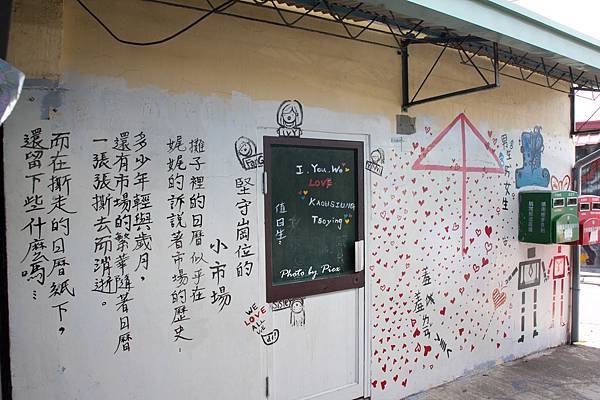 堅守崗位的
小市場
攤子裡的日曆似乎在
娓娓的訴說著市場的歷史,
多少年輕與歲月,
還有市場的繁華隨著日曆
一張張撕去而消逝。
而在撕走的日曆紙下,
還留下些什麼嗎…
I. You. We
LOVE
KAOHSIUNG
Tsoying
值日生:
Photo by Piex
WE
LOVE
ALL
男生
女生
羞
羞